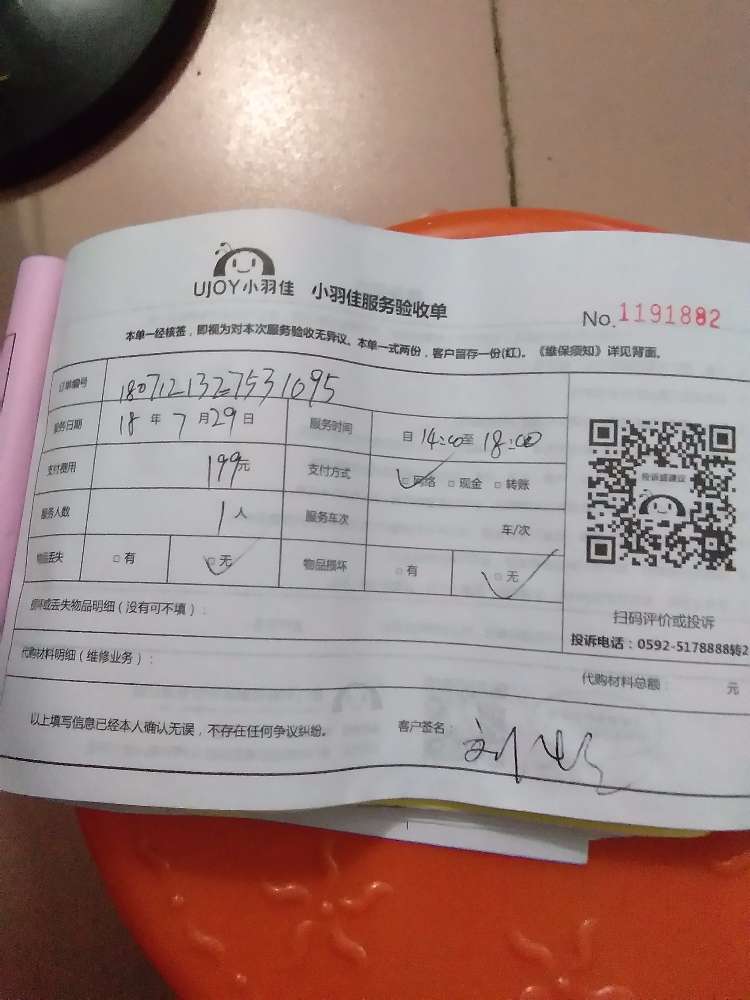 UJOY小羽佳 小羽佳服务验收单
No.1191882
本单一经核签，即视为对本次服务验收无异议。本单一式两份，客户留存一份(红)。《维保须知》详见背面。
订单编号 1807121327531095
服务日期 18 年 7 月 29 日 服务时间 自 14:00 至 18:00
支付费用 199元 支付方式 □网络 □现金 □转账
服务人数 1 人 服务车次 车/次
物品丢失 □有 □无 物品损坏 □有 □无
投诉或建议
扫码评价或投诉
投诉电话：0592-5178888转2
损坏或丢失物品明细（没有可不填）：
代购材料明细（维修业务）：
代购材料总额： 元
以上填写信息已经本人确认无误，不存在任何争议纠纷。 客户签名： 刘